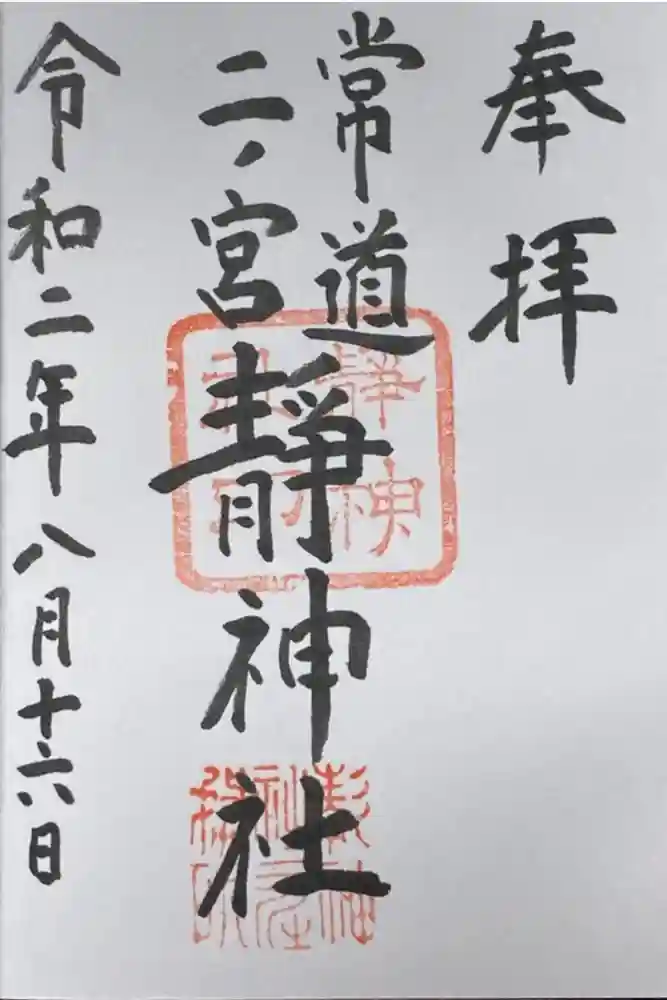 奉拝
常道
二ノ宮
靜神社
令和二年八月十六日
靜神